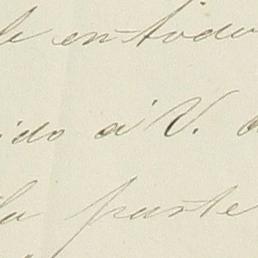 le en todo
ido a V. a
la parte